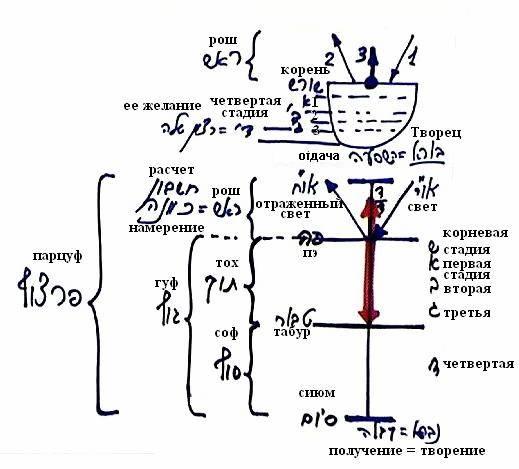 рош
ראש
2
3
1
корень
שורש
א 1
ב 2
ג 3
ее желание
четвертая
стадия
ד
Творец
отдача
בורא = השפעה
расчет
חשבון
рош
ראש = כוונה
намерение
או"ח
отраженный
свет
או"י
свет
пэ
פה
корневая
ש стадия
א первая
стадия
ב вторая
ג третья
ד четвертая
парцуф
פרצוף
гуф
גוף
тох
תוך
соф
סוף
табур
טבור
сиюм
סיום
נברא = קבלה
получение = творение